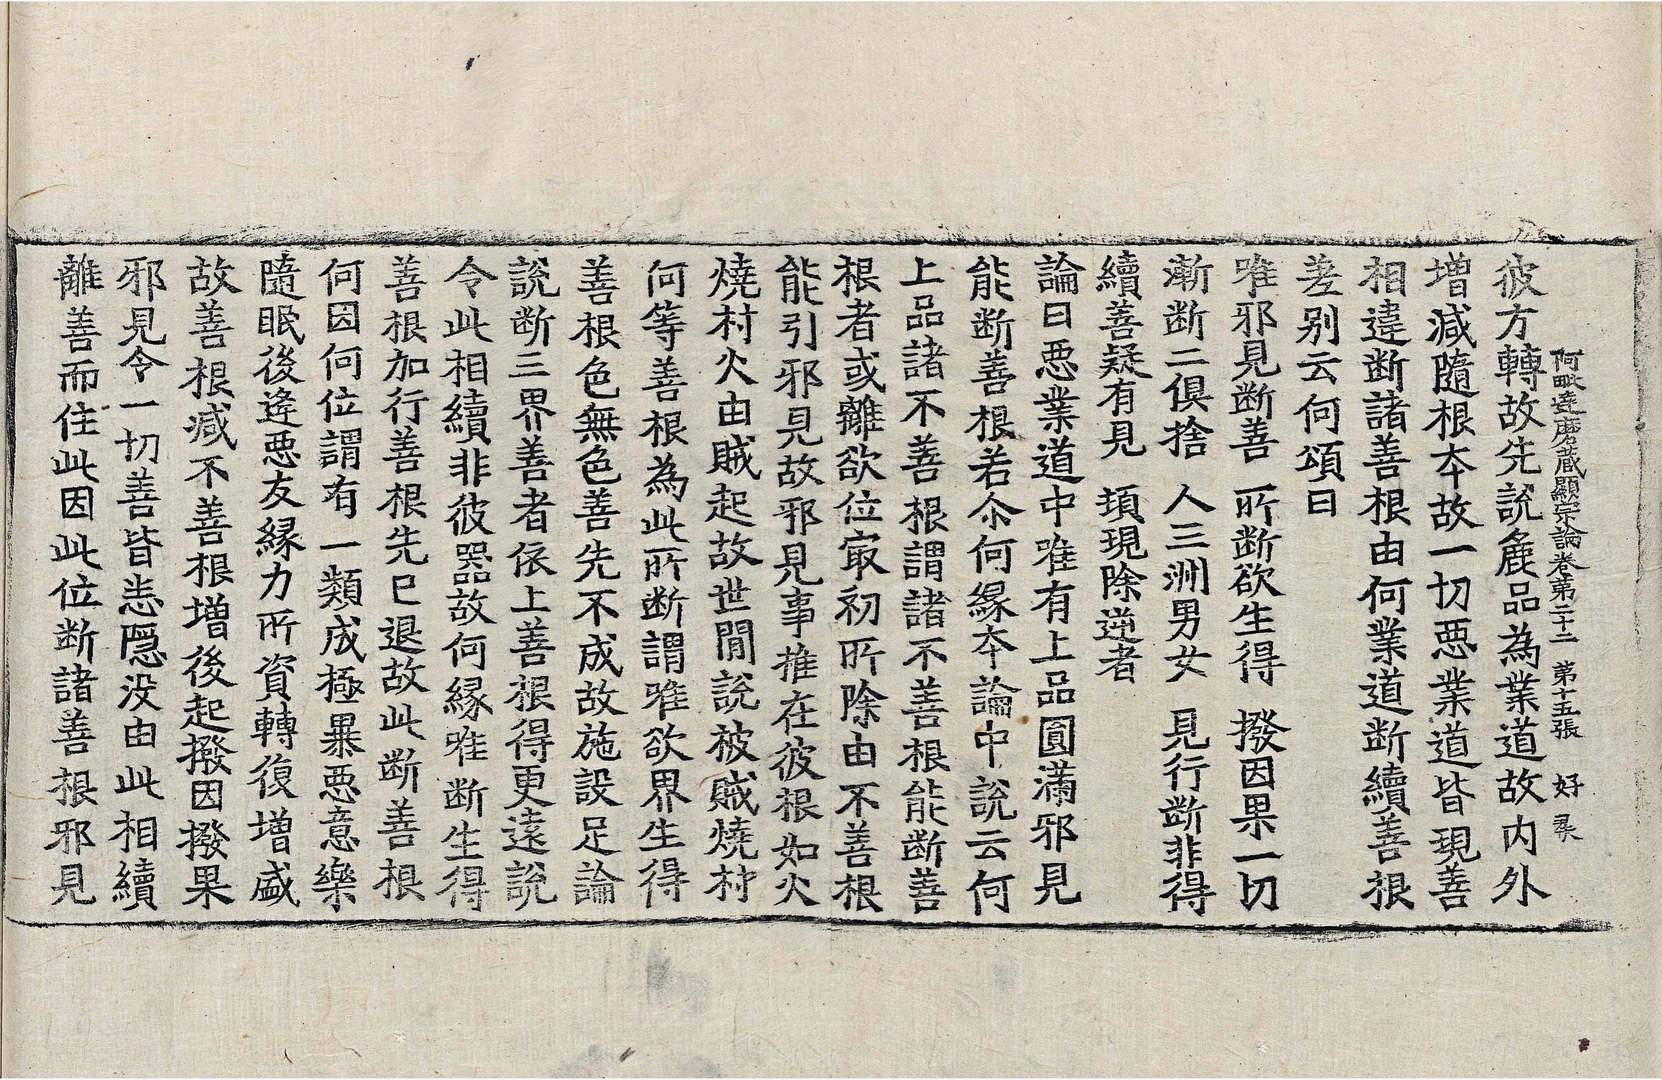 阿毗達磨藏顯宗論卷第二十二 第十五張 好
彼方轉故先說麁品為業道故内外
增減隨根夲故一切惡業道皆現善
相違断諸善根由何業道断續善根
差别云何頌曰
唯邪見断善 所断欲生得 撥因果一切
漸断二俱捨 人三洲男女 見行断非得
續善疑有見 頓現除逆者
論曰惡業道中唯有上品圓滿邪見
能断善根若尒何緣夲論中說云何
上品諸不善根謂諸不善根能断善
根者或離欲位㝡初所除由不善根
能引邪見故邪見事推在彼根如火
燒村火由賊起故世間說被賊燒村
何等善根為此所断謂唯欲界生得
善根色無色善先不成故施設足論
說断三界善者依上善根得更遠說
令此相續非彼器故何緣唯断生得
善根加行善根先已退故此断善根
何因何位謂有一類成極暴惡意樂
隨眠後逢惡友緣力所資轉復增盛
故善根減不善根增後起撥因撥果
邪見令一切善皆恙隠没由此相續
離善而住此因此位断諸善根邪見